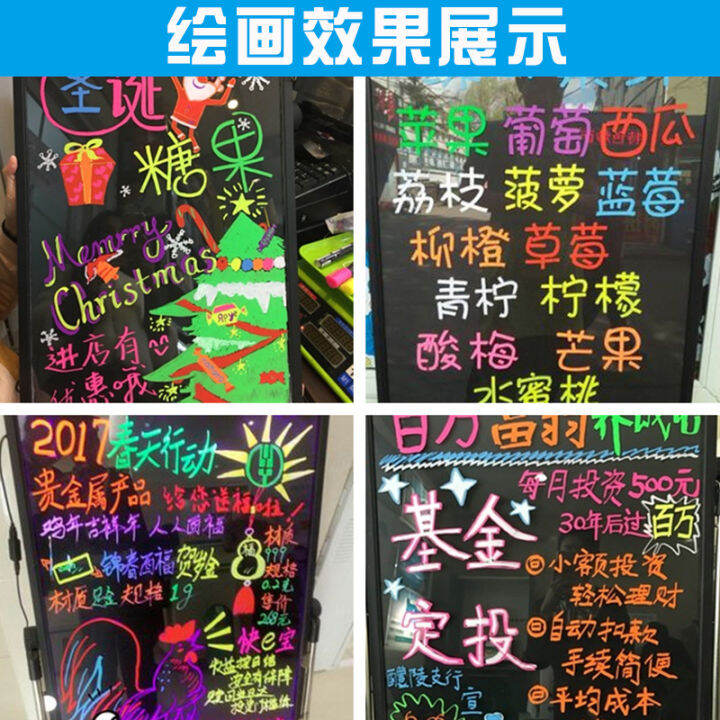 绘画效果展示
圣诞
糖果
Memrry
Christmas
进店有
优惠哦
苹果 葡萄 西瓜
荔枝 菠萝 蓝莓
柳橙 草莓
青柠 柠檬
酸梅 芒果
水蜜桃
2017春天行动
贵金属产品 给您送福啦!
鸡年吉祥年 人人团福
锦春西福 贺岁金
材质足金 规格1g
材质
999
规格
0.2克
售价
268元
快e宝
安全有保障
百万富翁
每月投资500元
30年后过百万
基金
定投
小额投资
轻松理财
自动扣款
手续简便
平均成本
醴陵支行
宣